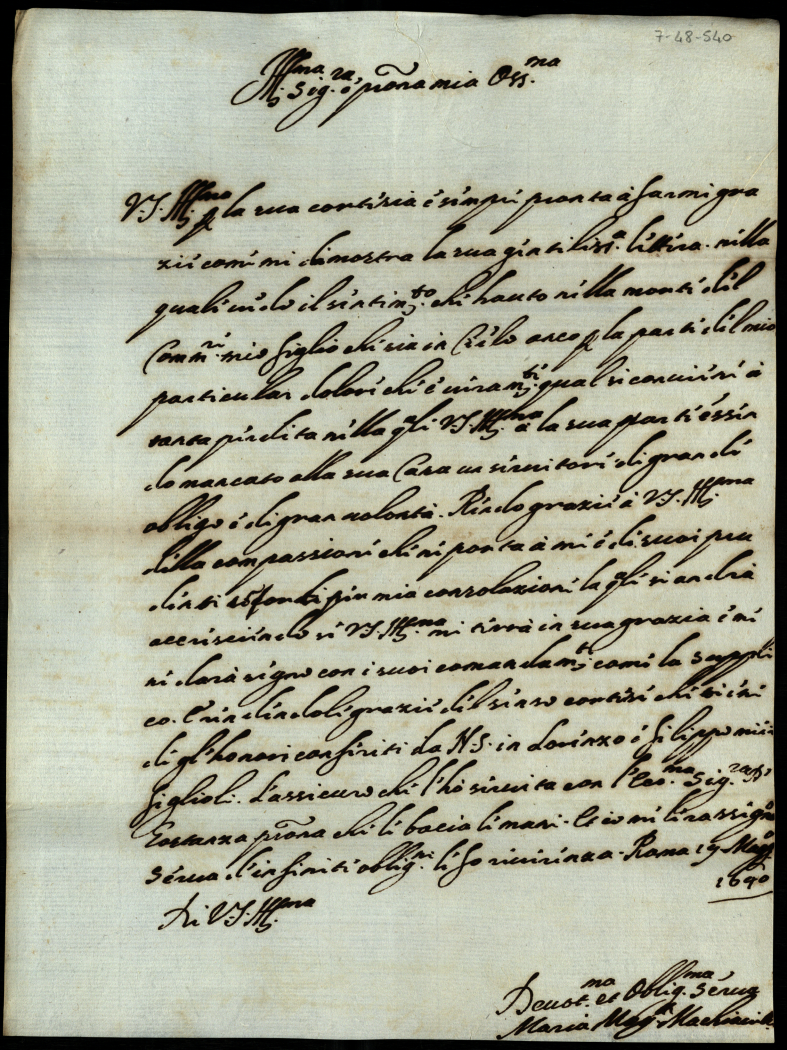 7-48-540
Ill.ma Sig.ra e p̄rona mia Oss.ma
V.S. Ill.ma p la sua cortesia è sempre pronta à farmi gra
zie come mi dimostra la sua gentiliss.a lettera. nella
quale vedo il sentim.to che hauto nella morte del
Comm.re mio figlio che sia in Cielo anco p la parte del mio
particular dolore che è veram.te qual si conviene à
tanta perdita nella q̄le V.S. Ill.ma à la sua parte essen
do mancato alla sua Casa un servitore di grande
obligo è di gran volontà. Rendo grazie à V.S. Ill.ma
della compassione che ne porta à me è di suoi pru
denti mia consolazione la q̄le si andrà
accrescendo se V.S. Ill.ma mi terrà in sua grazia è me
ne darà segno con i suoi comandam.ti come la suppli
co. E rendendole grazie del senso cortese che tiene
degl'honori conferiti da N.S. in Lorenzo è Filippo miei
figlioli. L'assicuro che l'hò servita con l'Ecc.ma Sig.ra D.
Costanza p̄rona che le bacia le mani. Et io me le rassegno
Serva d'infiniti oblig.ni le fo riverenza. Roma 19 Mag.o
1690
Di V.S. Ill.ma
Devot.ma et Oblig.ma Serva
Maria Mag.a